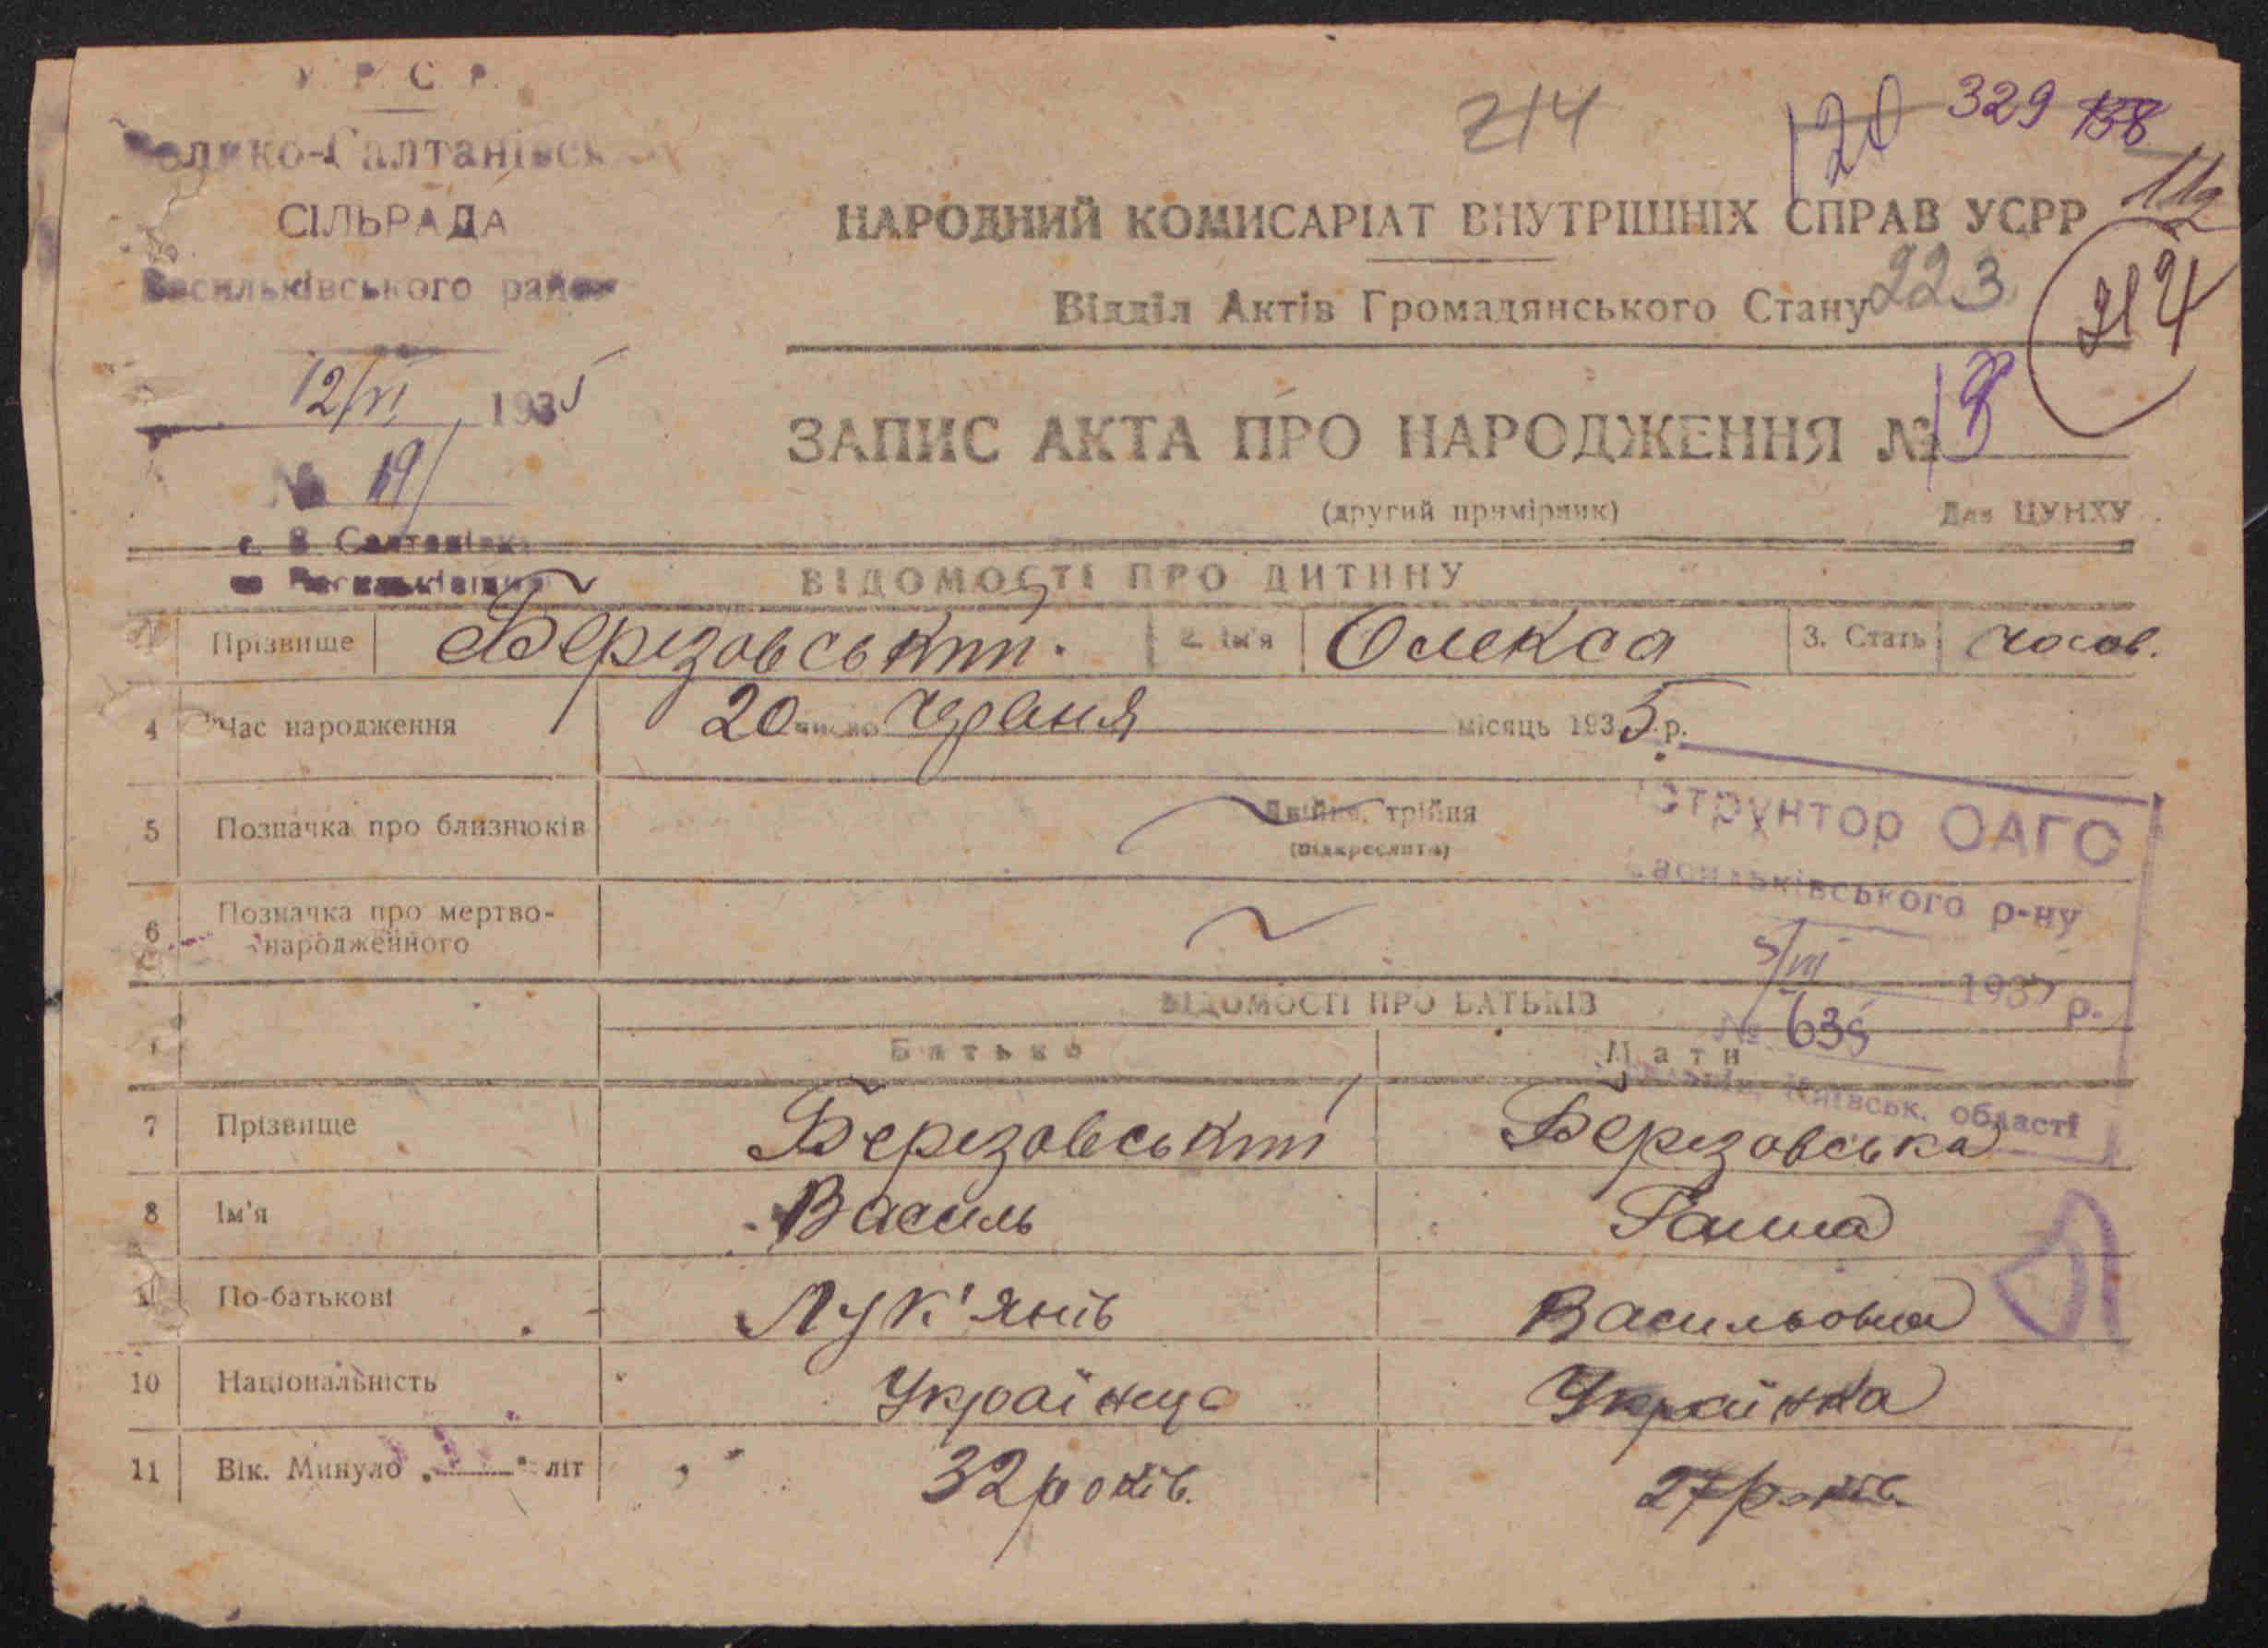 У.Р.С.Р.
Велико-Салтанівськ
СІЛЬРАДА
Васильківського району
12/VI 1935
№ 19/
с. В Салтанівк
на Васильківщині
214
120 329 138
119
214
223
НАРОДНИЙ КОМИСАРІАТ ВНУТРІШНІХ СПРАВ УСРР
Відділ Актів Громадянського Стану
ЗАПИС АКТА ПРО НАРОДЖЕННЯ № 19
(другий примірник) Для ЦУНХУ
ВІДОМОСТІ ПРО ДИТИНУ
Прізвище Березовський. 2. Ім'я Олекса 3. Стать чолов.
4 Час народження 20 число червня місяць 1935 р.
5 Позначка про близнюків Двійня, трійня
(підкреслити)
6 Позначка про мертво-
народженного
структор ОАГС
Васильківського р-ну
5/VII 1935 р.
№ 635
Київськ. області
ВІДОМОСТІ ПРО БАТЬКІВ
Батько Мати
7 Прізвище Березовський Березовська
8 Ім'я Василь Ганна
По-батькові Лук'янів Васильовна
10 Національність Українець Українка
11 Вік. Минуло „ “ літ 32 років. 27 років.